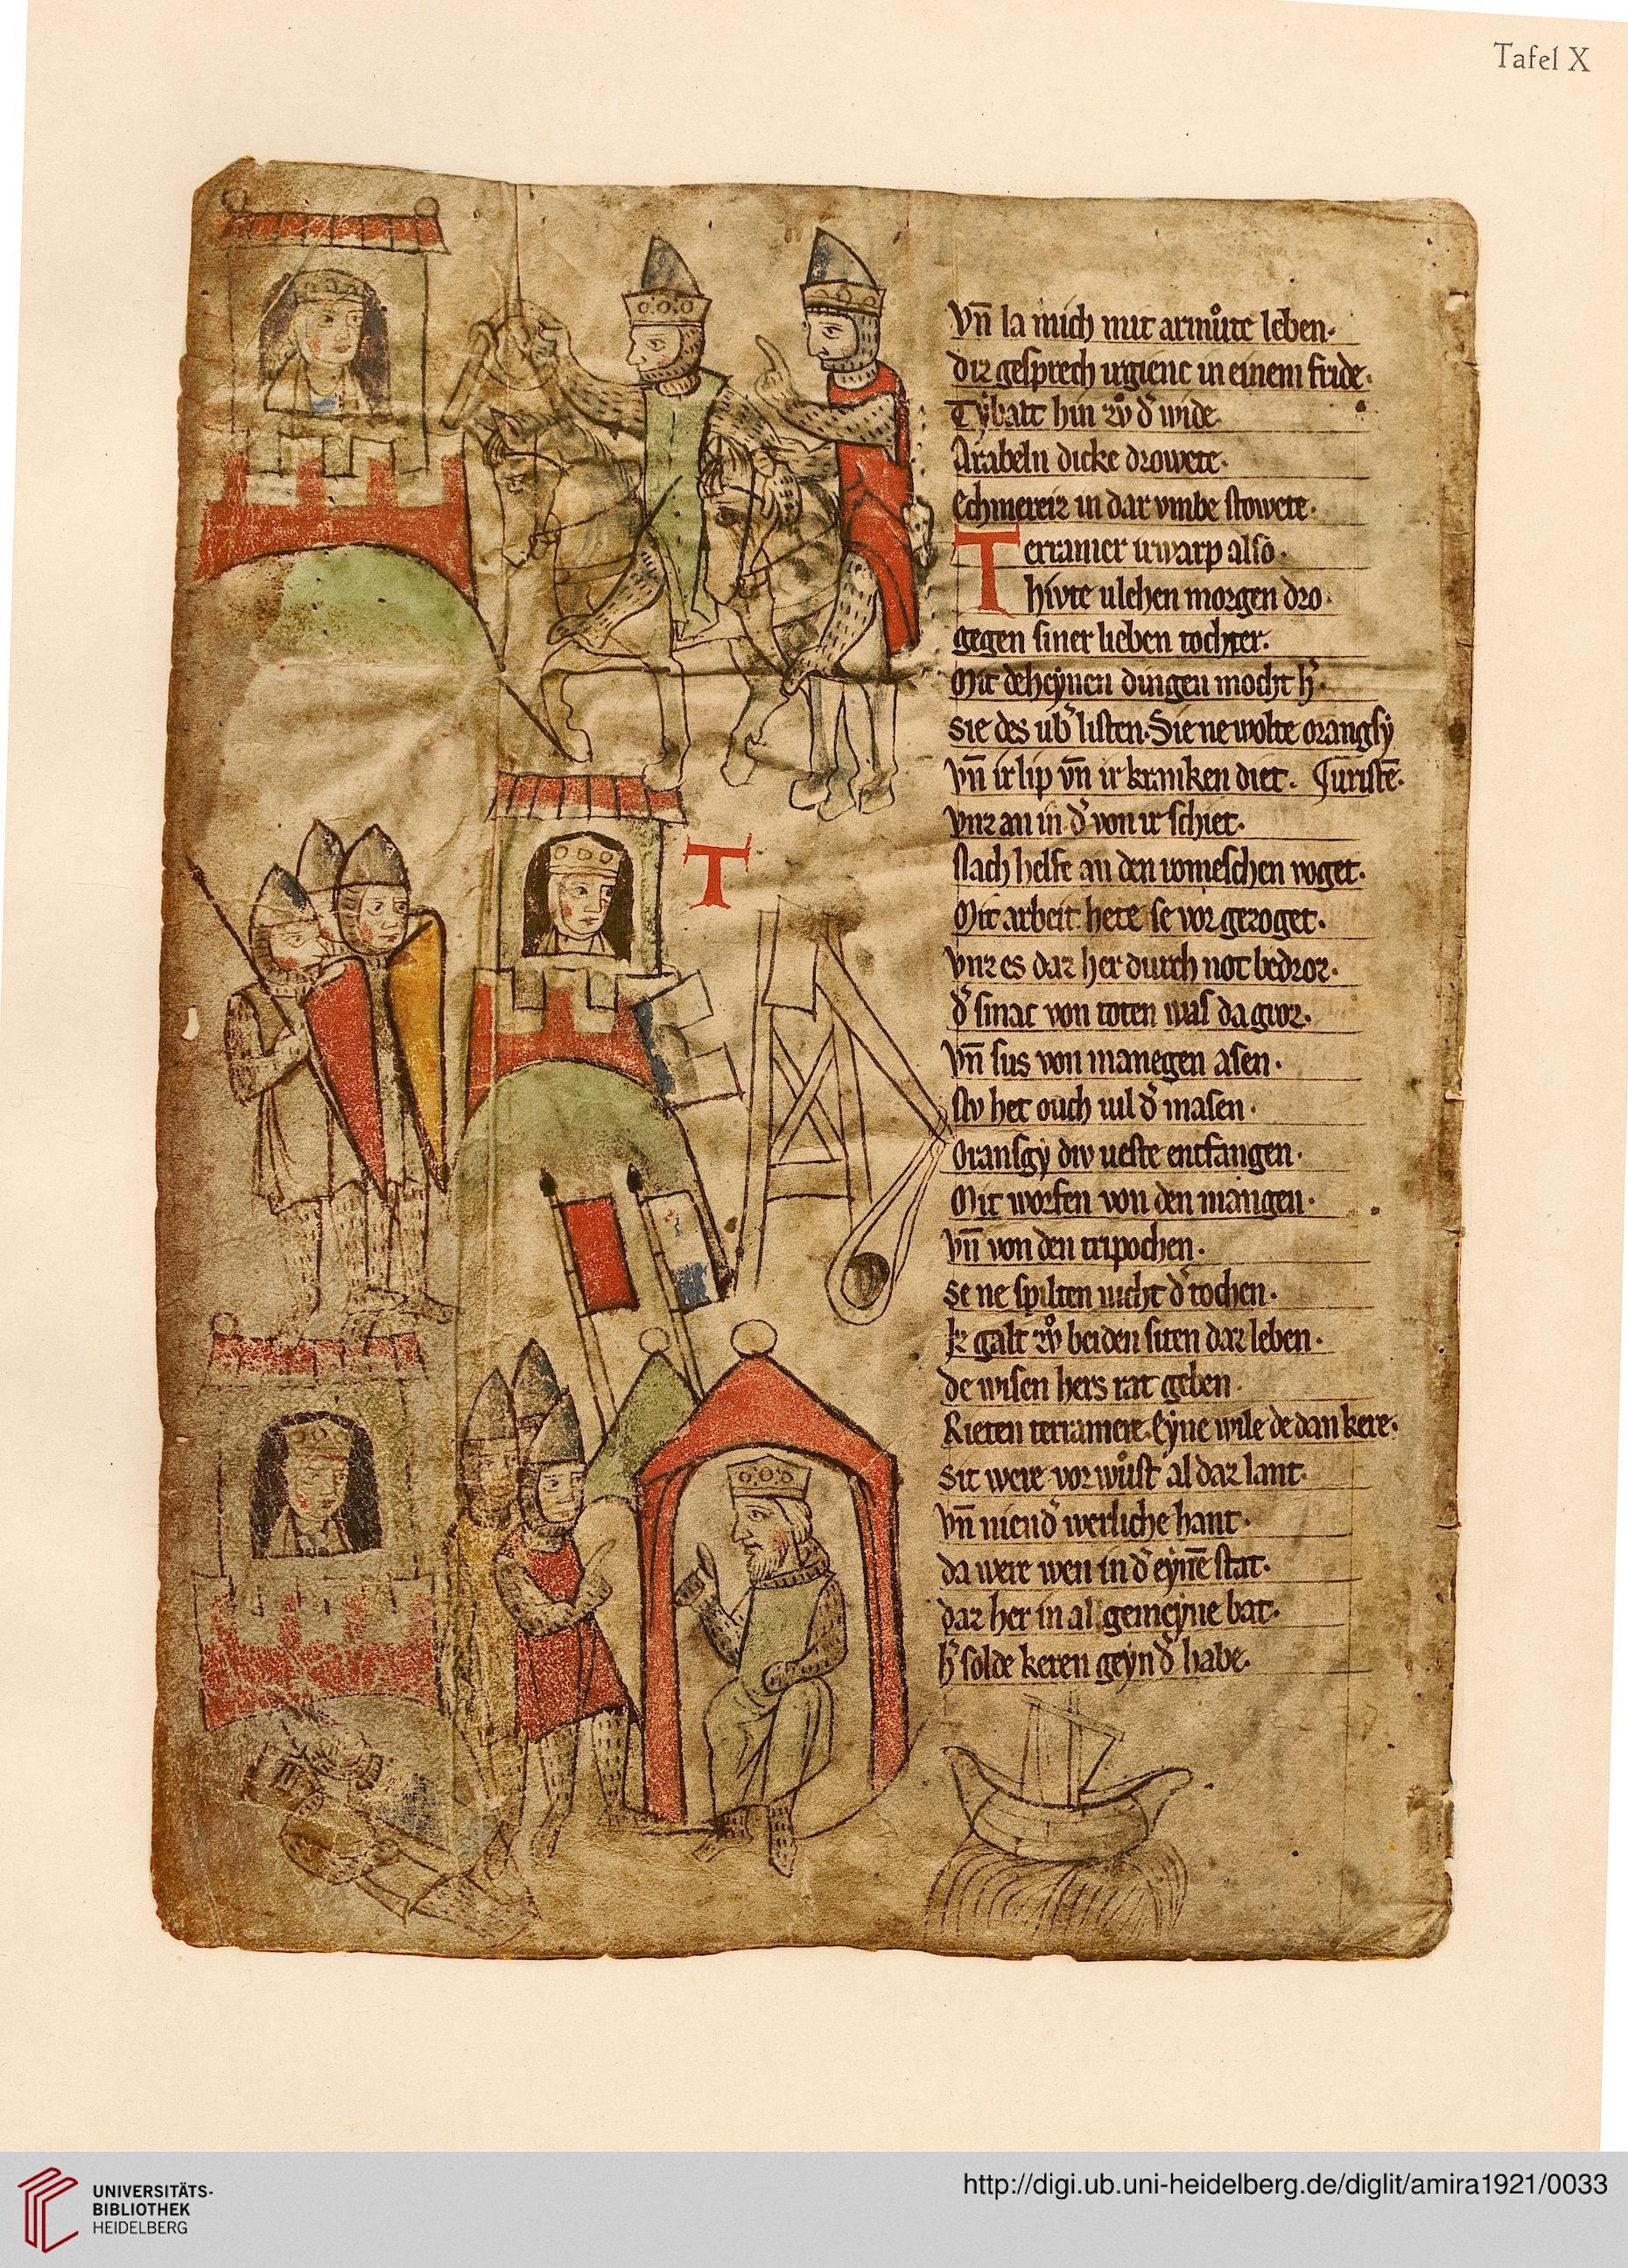 Tafel X
Vn̄ la mich mit armůte leben·
diz gesprech irgienc in einem fride·
Tybalt hin zů d͛ wide
Arabeln dicke drowete·
Echmereiz in dar vmbe strowete·
Terramer irwarp also·
hivte vlehen morgen dro·
gegen siner lieben tochter·
Mit deheynen dingen mocht h͛·
sie des ub͛ listen· Sie ne wolte orangsy
vn̄ ir lip vn̄ ir kranken diet· Jvristē·
vnz an in d͛ von ir schiet·
T
Nach helfe an den romeschen voget·
Mit arbeit here se vor gezoget·
vnz es daz her durch not bedroz·
d͛ smac von toten was da groz·
vn̄ sus von manegen asen·
Nv het ouch vil d͛ masen·
Oransgy div veste entfangen·
Mit worfen von den mangen·
vn̄ von den tripochen·
se ne spilten nicht d͛ tochen·
Jz galt zů beiden siten daz leben·
de wisen hers rat geben·
Rieten terramere· Eyne wile de dan kere·
sit were vor wůst al daz lant·
vn̄ niend͛ werliche hant·
da were wen in d͛ eynē stat·
daz her in al gemeyne bat·
h͛ solde keren geyn d͛ habe·
UNIVERSITÄTS-
BIBLIOTHEK
HEIDELBERG
http://digi.ub.uni-heidelberg.de/diglit/amira1921/0033